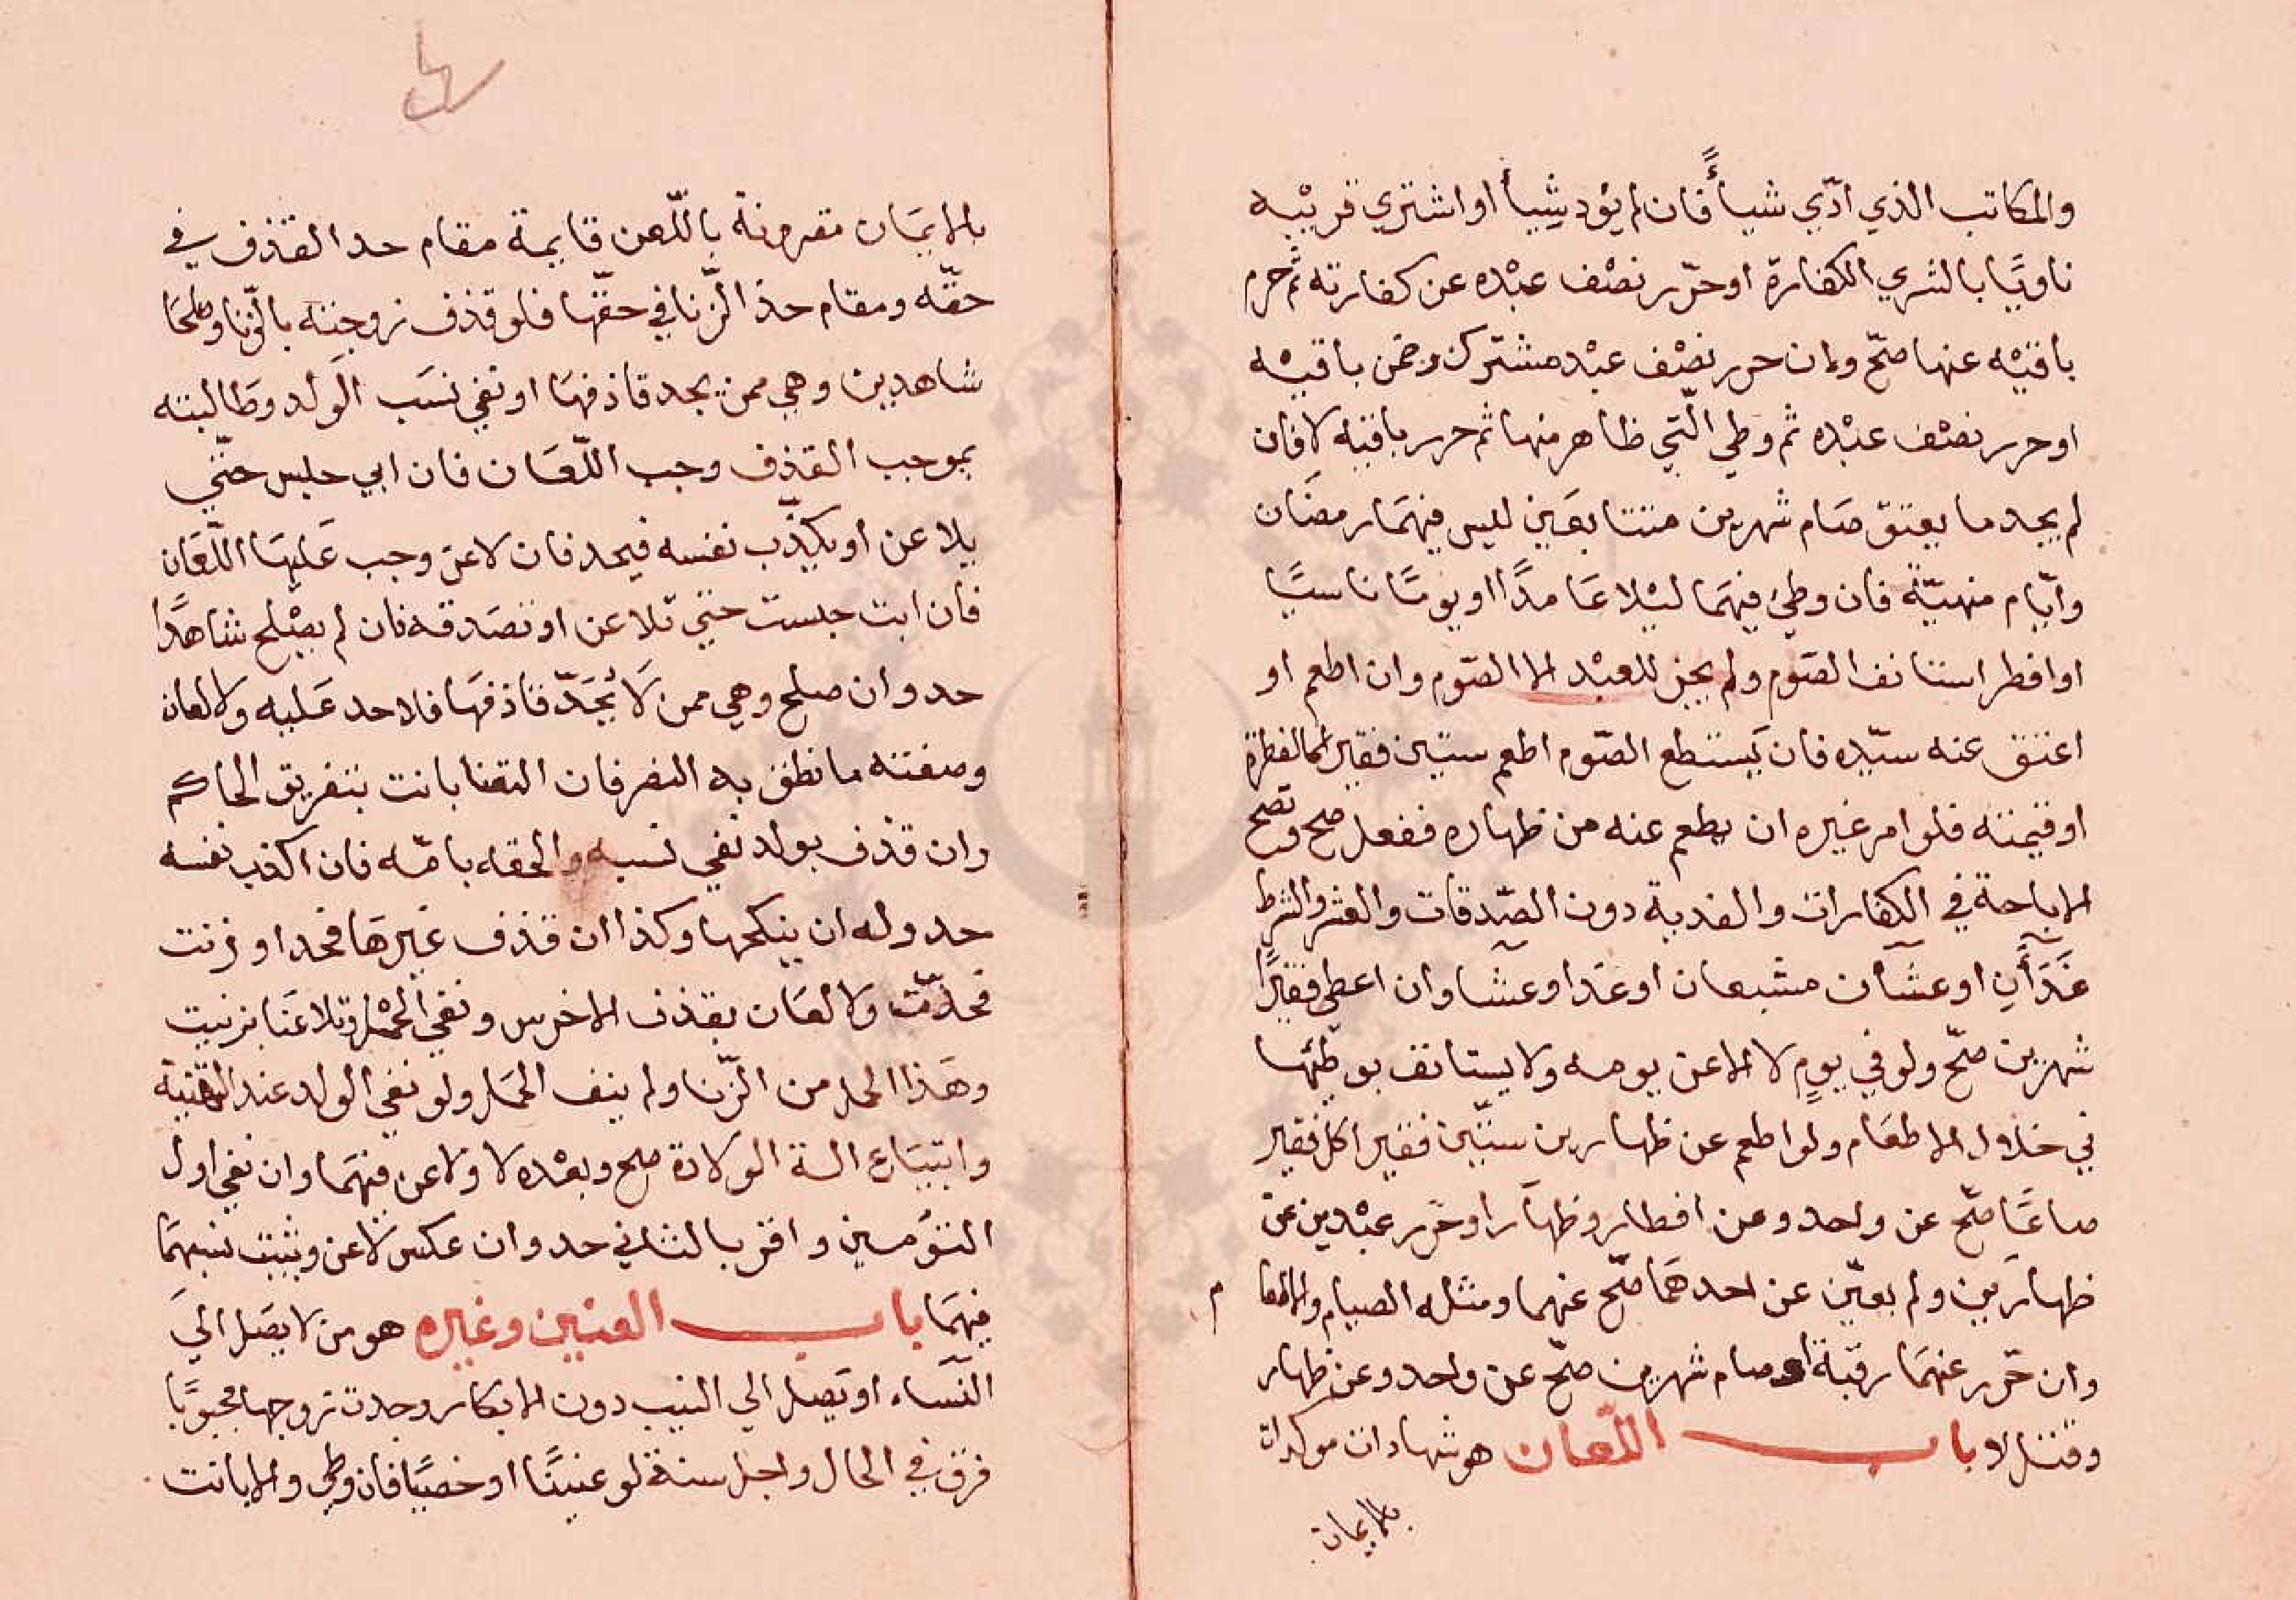 والمكاتب الذي ادّي شيأً فان لم يؤد شيأ او اشتري قريبه
ناويًا بالشري الكفارة او حرّر نصف عبده عن كفارته ثم حرم
باقيه عنها صحّ وان حرر نصف عبد مشترك وضمن باقيه
او حرر نصف عبده ثم وطي الّتي ظاهر منها ثم حرر باقيه لا فان
لم يجد ما يعتق صام شهرين متتابعين ليس فيهما رمضان
وايّام منهيّة فان وطئ فيهما ليلا عامدًا او يومًا ناسيًا
او افطر استانف الصوم ولم يجز للعبد الا الصّوم وان اطعم او
اعتق عنه سيّده فان يستطع الصّوم اطعم ستين فقيرا كالفطرة
او قيمته فلو امر غيره ان يطعم عنه من ظهاره ففعل صح وتصح
الاباحة في الكفارات والفدية دون الصّدقات والعشر والشرط
غدآأن او عشآان مشبعان او غدا وعشا وان اعطي فقيرًا
شهرين صحّ ولو في يومٍ لا الا عن يومه ولا يستانف بوطئها
في خلال الاطعام ولو اطعم عن ظهارين ستّين فقيرا كل فقير
صاعًا صحّ عن واحد وعن افطار وظهار او حرّر عبدين عن
ظهارين ولم يعيّن عن احدهما صحّ عنهما ومثله الصيام والاطعا
م
وان حرّر عنهما رقبة او صام شهرين صحّ عن واحد وعن ظهار
وقتل لا باب اللّعان هو شهادات موكدات
بالايمان
بالايمان مقرونة باللّعن قايمة مقام حد القذف في
حقّه ومقام حد الزّنا في حقّها فلو قذف زوجته بالزّنا وصلحا
شاهدين وهي ممن يحد قاذفها او نفي نسب الولد وطالبته
بموجب القذف وجب اللّعان فان ابي حبس حتّي
يلاعن او يكذّب نفسه فيحد فان لاعن وجب عليها اللّعان
فان ابت حبست حتي تلاعن او تصدقه فان لم يصلح شاهدًا
حد وان صلح وهي ممن لا يحدّ قاذفها فلا حد عليه ولا لعان
وصفته ما نطق به النص فان التعنا بانت بتفريق الحاكم
وان قذف بولد نفي نسبه والحقه بامّه فان اكذب نفسه
حد وله ان ينكحها وكذا ان قذف غيرها فحد او زنت
فحدّت ولا لعان بقذف الاخرس ونفي الحمل وتلاعنا بزنيت
وهذا الحمل من الزّنا ولم ينف الحمل ولو نفي الولد عند التهنية
وابتياع الة الولادة صح وبعده لا ولاعن فيهما وان نفي اول
التؤمين واقر بالثاني حد وان عكس لاعن ويثبت نسبهما
فيهما باب العنين وغيره هو من لا يصل الي
النّساء او يصل الي الثيب دون الابكار وجدت زوجها مجبوبًا
فرق في الحال واجل سنة لو عنينًا او خصيًا فان وطي والا بانت